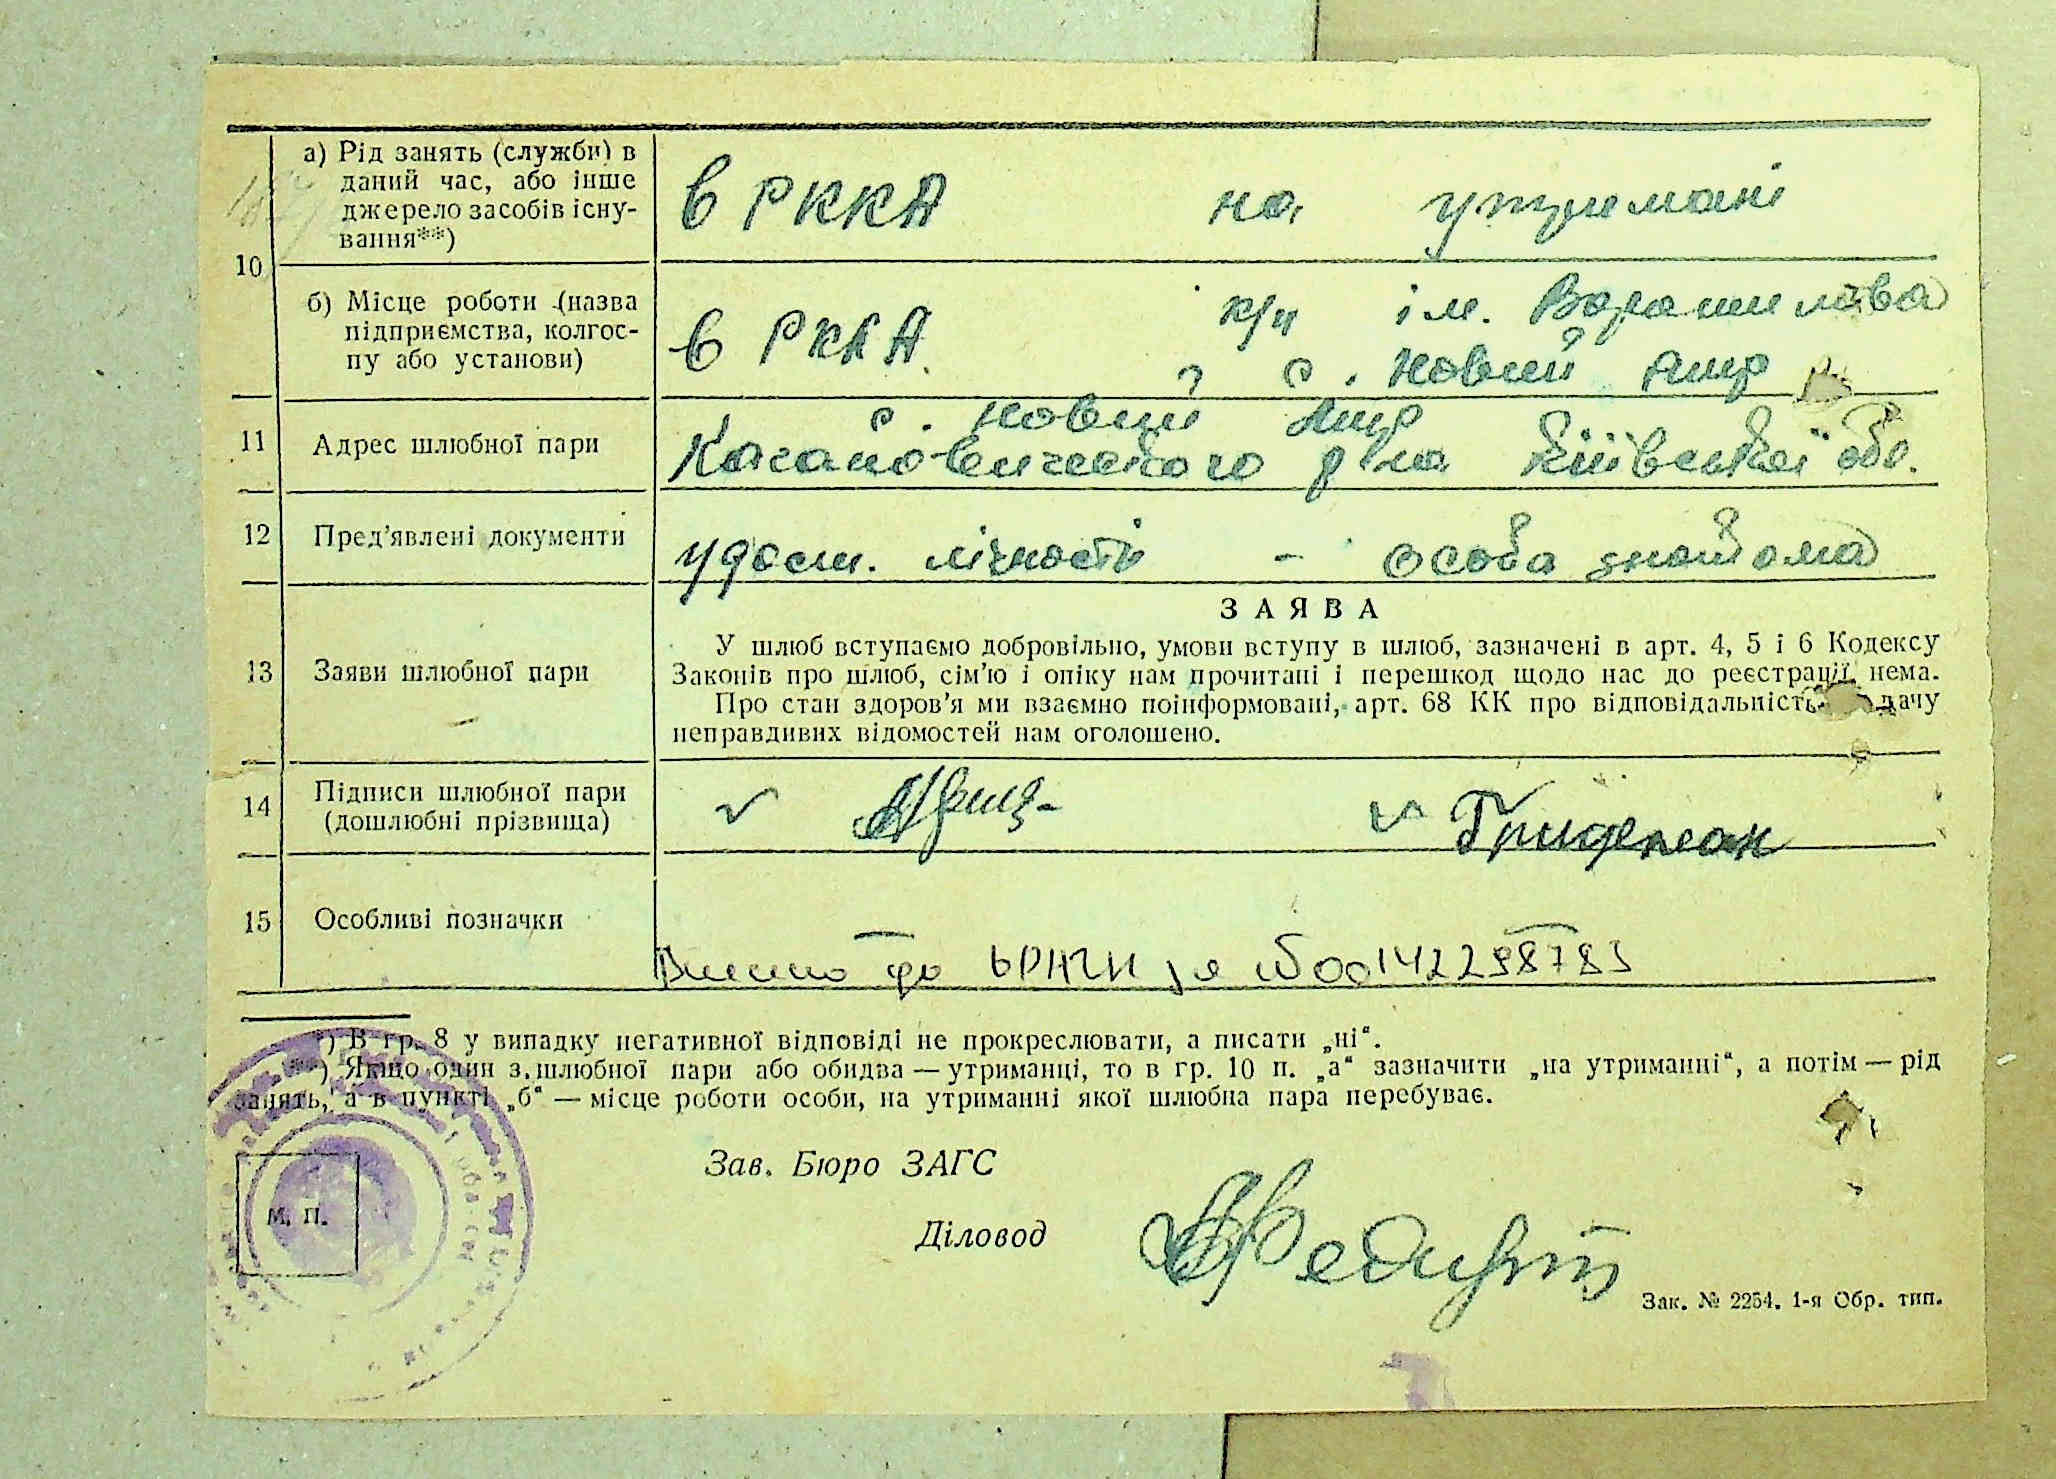 а) Рід занять (служби) в
даний час, або інше
джерело засобів існу-
вання**)
в РККА на утримані
10
б) Місце роботи (назва
підприємства, колгос-
пу або установи)
в РККА
к/г ім. Ворошилова
с. Новий Мир
11 Адрес шлюбної пари
с. Новий Мир
Кагановичского р-на Київської обл.
12 Пред'явлені документи
удост. лічності - особа знайома
13 Заяви шлюбної пари
ЗАЯВА
У шлюб вступаємо добровільно, умови вступу в шлюб, зазначені в арт. 4, 5 і 6 Кодексу
Законів про шлюб, сім'ю і опіку нам прочитані і перешкод щодо нас до реєстрації нема.
Про стан здоров'я ми взаємно поінформовані, арт. 68 КК про відповідальність дачу
неправдивих відомостей нам оголошено.
14 Підписи шлюбної пари
(дошлюбні прізвища)
15 Особливі позначки
Внесено до ДРАЦС за №00142298785
*) В гр. 8 у випадку негативної відповіді не прокреслювати, а писати „ні“.
**) Якщо один з шлюбної пари або обидва — утриманці, то в гр. 10 п. „а“ зазначити „на утриманні“, а потім — рід
занять, а в пункті „б“ — місце роботи особи, на утриманні якої шлюбна пара перебуває.
Зав. Бюро ЗАГС
Діловод
М. П.
Зак. № 2254. 1-я Обр. тип.